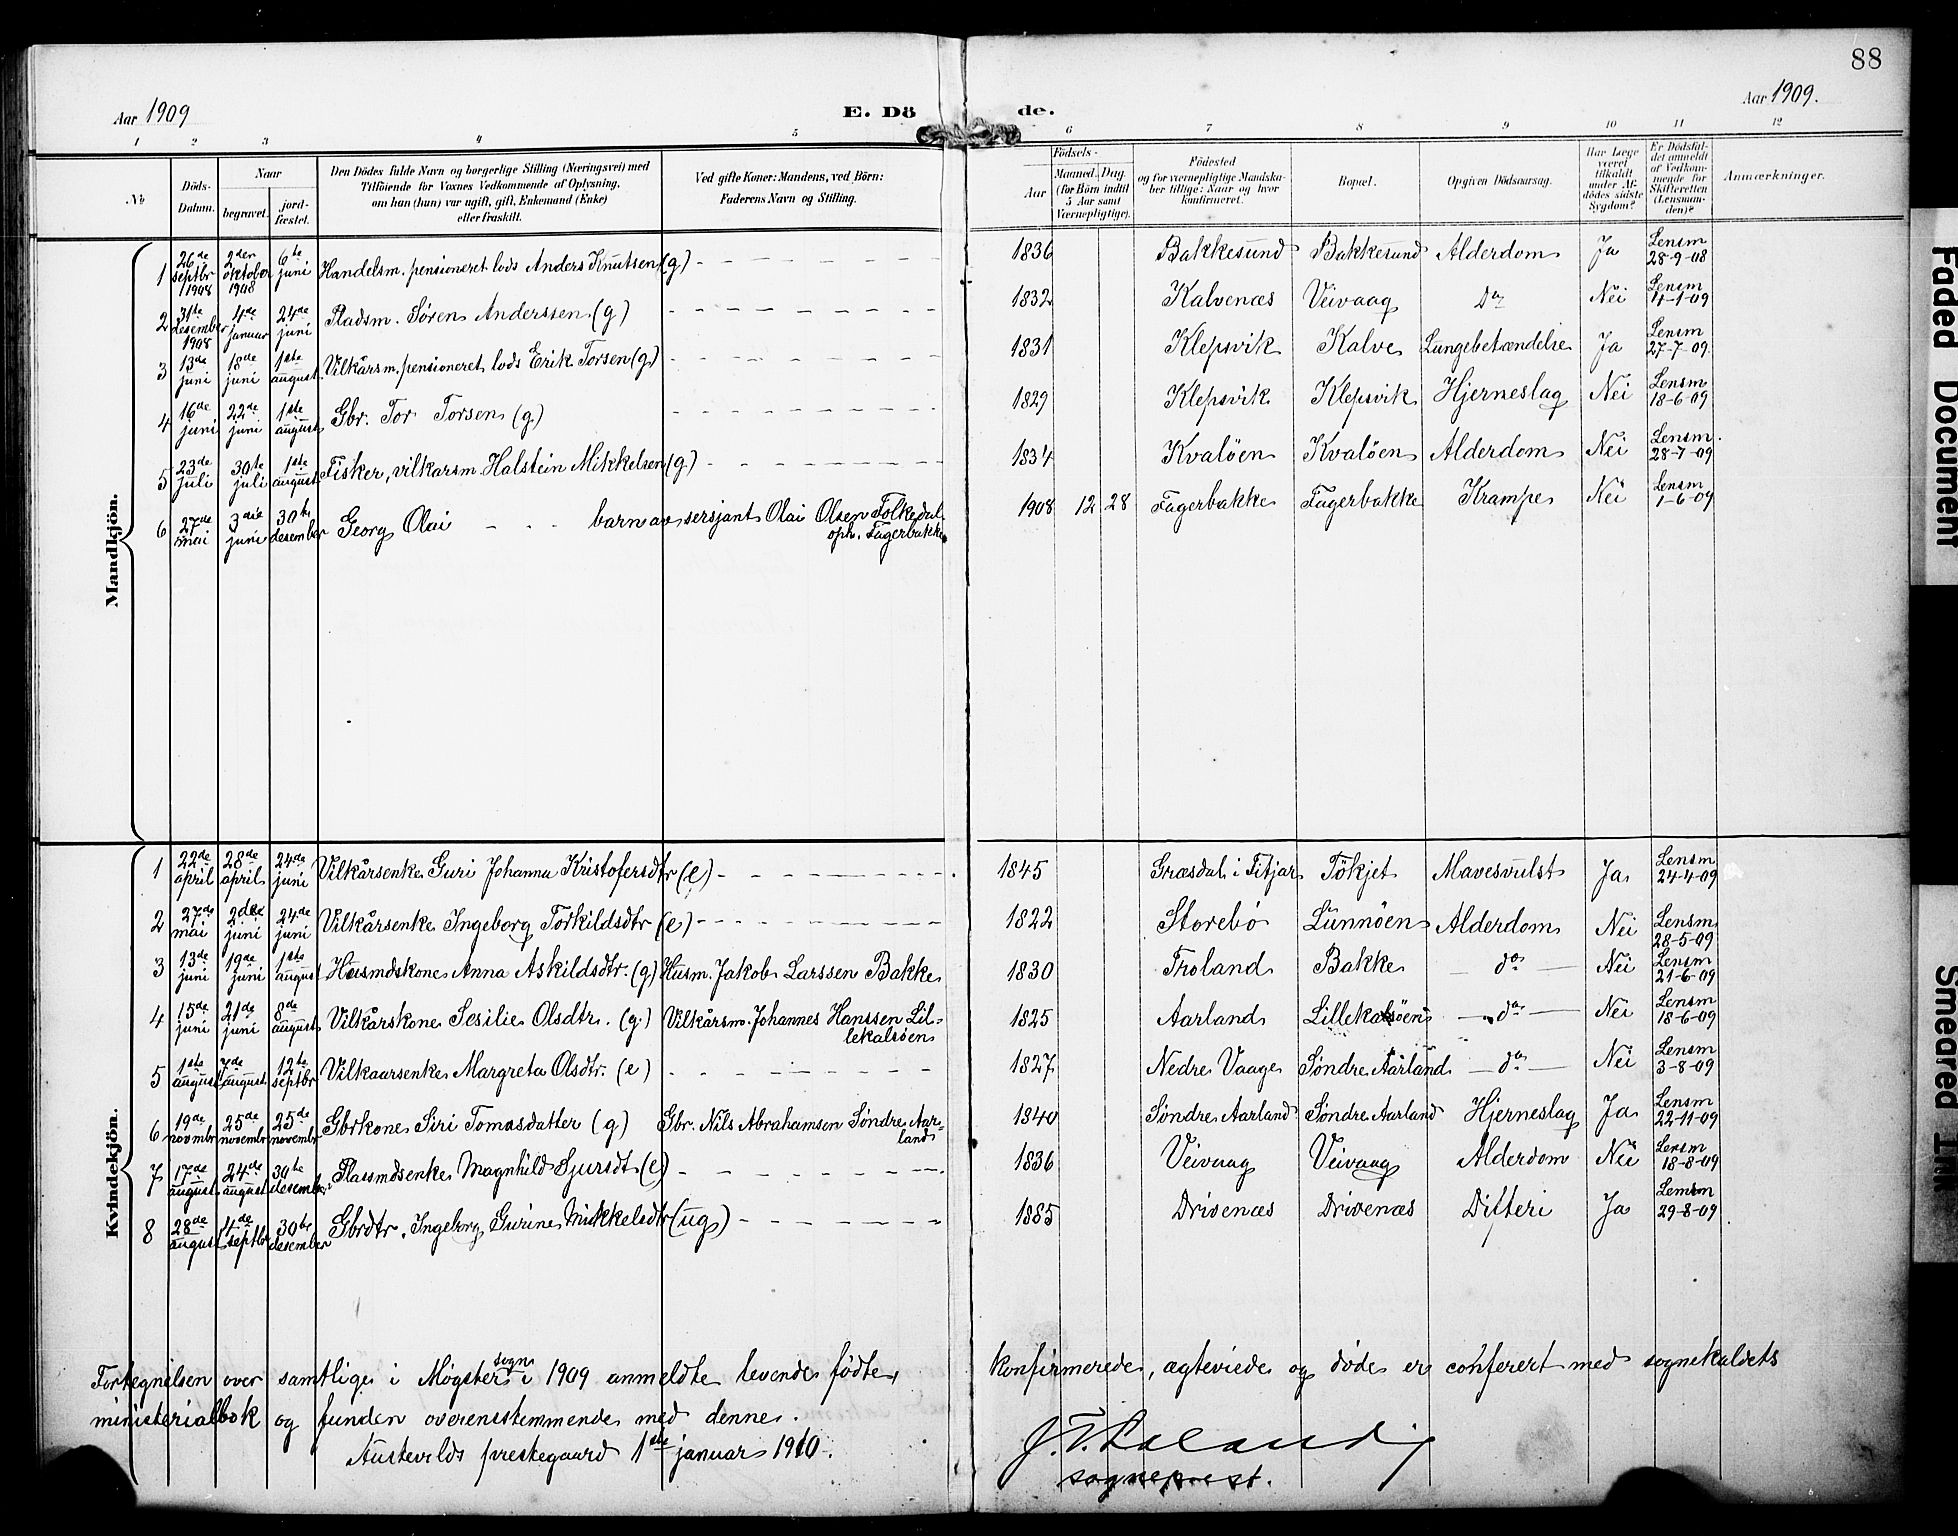 88
Aar 1909
E. Dö
de.
Aar 1909.
1 2 3 4 5 6 7 8 9 10 11 12
No
Döds-Datum.
Naar
begravet.
jord-fæstet.
Den Dödes fulde Navn og borgerlige Stilling (Næringsvei) med
Tilföiende for Voxnes Vedkommende af Oplysning,
om han (hun) var ugift, gift, Enkemand (Enke)
eller fraskilt.
Ved gifte Koner: Mandens, ved Börn:
Faderens Navn og Stilling.
Födsels-
Aar
Maaned. Dag.
(for Börn indtil 5 Aar samt Værnepligtige).
Födested
og for værnepligtige Mandska-
ber tillige: Naar og hvor
konfirmeret.
Bopæl.
Opgiven Dödsaarsag.
Har Læge været tilkaldt under Af-dödes sidste Sygdom?
Er Dödsfal-det anmeldt af Vedkom-mende for Skifteretten (Lensman-den)?
Anmærkninger.
Mandkjön.
1 26de septbr 1908 2den oktober 1908 6te juni Handelsm. pensioneret lods Anders Knutsen (g) 1836 Bakkesund Bakkesund Alderdom Ja Lensm 28-9-08
2 31te desember 1908 4de januar 24de juni Pladsm. Søren Anderssen (g) 1832 Kalvenæs Veivaag Do Nei Lensm 4-1-09
3 13de juni 18de juni 1ste august Vilkårsm. pensioneret lods Erik Torsen (g) 1831 Klepsvik Kalve Lungebetændelse Ja Lensm 27-7-09.
4 16de juni 22de juni 1ste august Gbr. Tor Torsen (g) 1829 Klepsvik Klepsvik Hjerneslag Nei Lensm 18-6-09
5 23de juli 30te juli 1ste august Fisker, vilkarsm. Halstein Mikkelsen (g) 1834 Kvalöen Kvalöen Alderdom Nei Lensm. 28-7-09
6 27de mai 3die juni 30te desember Georg Olai barn av sersjant Olai Olsen Folkedal oph. Fagerbakke 1908 12 28 Fagerbakke Fagerbakke Krampe Nei Lensm 1-6-09
Kvindekjön.
1 22de april 28de april 24de juni Vilkårsenke Guri Johanna Kristofersdtr (e) 1845 Græsdal i Fitjar Tökjet Mavesvulst Ja Lensm 24-4-09
2 27de mai 2den juni 24de juni Vilkårsenke Ingeborg Torkildsdtr (e) 1822 Storebö Lunnöen Alderdom Nei Lensm 28-5-09
3 13de juni 19de juni 1ste august Husmdskone Anna Askildsdtr. (g) Husm. Jakob Larssen Bakke 1830 Froland Bakke do Nei Lensm 21-6-09
4 15de juni 21de juni 8de august Vilkårskone Sesilie Olsdtr. (g.) Vilkårsm. Johannes Hanssen Lil-
lekalsöen 1825 Aarland Lillekalsöen do Nei Lensm 18-6-09
5 1ste august 7de august. 12te septbr Vilkaarsenke Margreta Olsdtr. (e) 1827 Nedre Vaage Søndre Aarland do Nei Lensm 3-8-09
6 19de novmbr 25de novembr 25de novembr Gbrkone Siri Tomasdatter (g) Gbr. Nils Abrahamsen Søndre Aar-
land 1840 Søndre Aarland Søndre Aarland Hjerneslag Ja Lensm 22-11-09
7 17de august 24de august 30te desember Plassmdsenke Magnhild Sjursdt (e) 1836 Veivaag Veivaag Alderdom Nei Lensm 18-8-09
8 28de august 4de septbr 30te desember Gbrdtr. Ingeborg Gurine Mikkelsdtr (ug) 1885 Drivenæs Drivenæs Difteri Ja Lensm 29-8-09
Fortegnelsen over samtlige i Møgster sogn i 1909 anmeldte levende fødte, konfirmerede, ægteviede og døde er conferert med sognekaldets
ministerialbok og funden overensstemmende med denne.
Austevolds prestegaard 1ste januar 1910.
sogneprest.
Faded Document
Smeared Ink